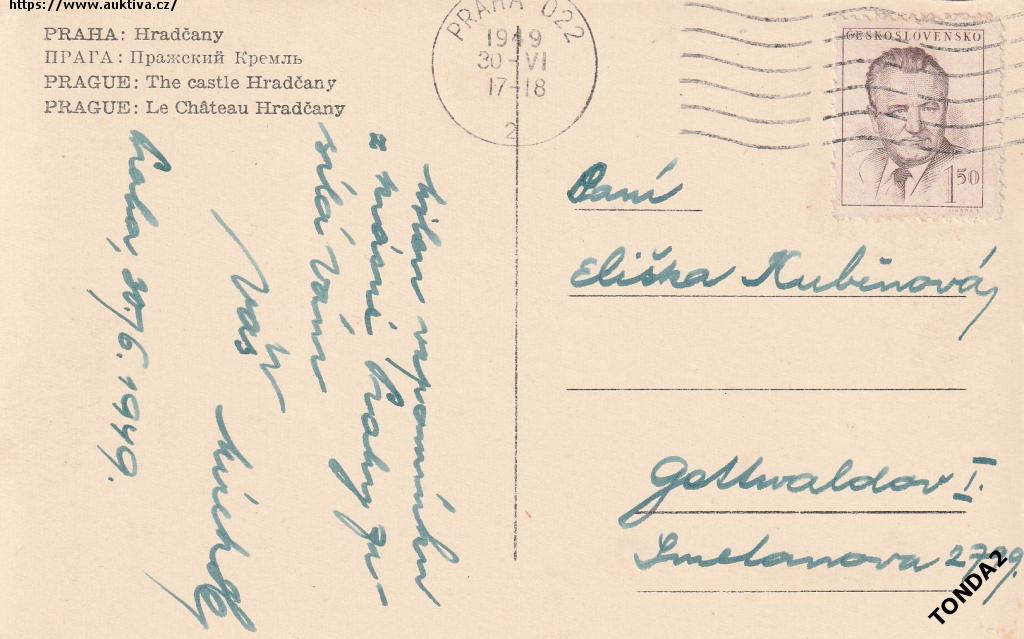 https://www.auktiva.cz/
PRAHA: Hradčany
ПРАГА: Пражский Кремль
PRAGUE: The castle Hradčany
PRAGUE: Le Château Hradčany
PRAHA 022
1949
30-VI
17-18
2
ČESKOSLOVENSKO
1 50
Milou vzpomínku
z krásné Prahy po-
sílá Vám
Váš
Praha, 30./6. 1949.
Paní
Eliška Kubínová,
Gottwaldov I.
Smetanova 2799.
TONDA2